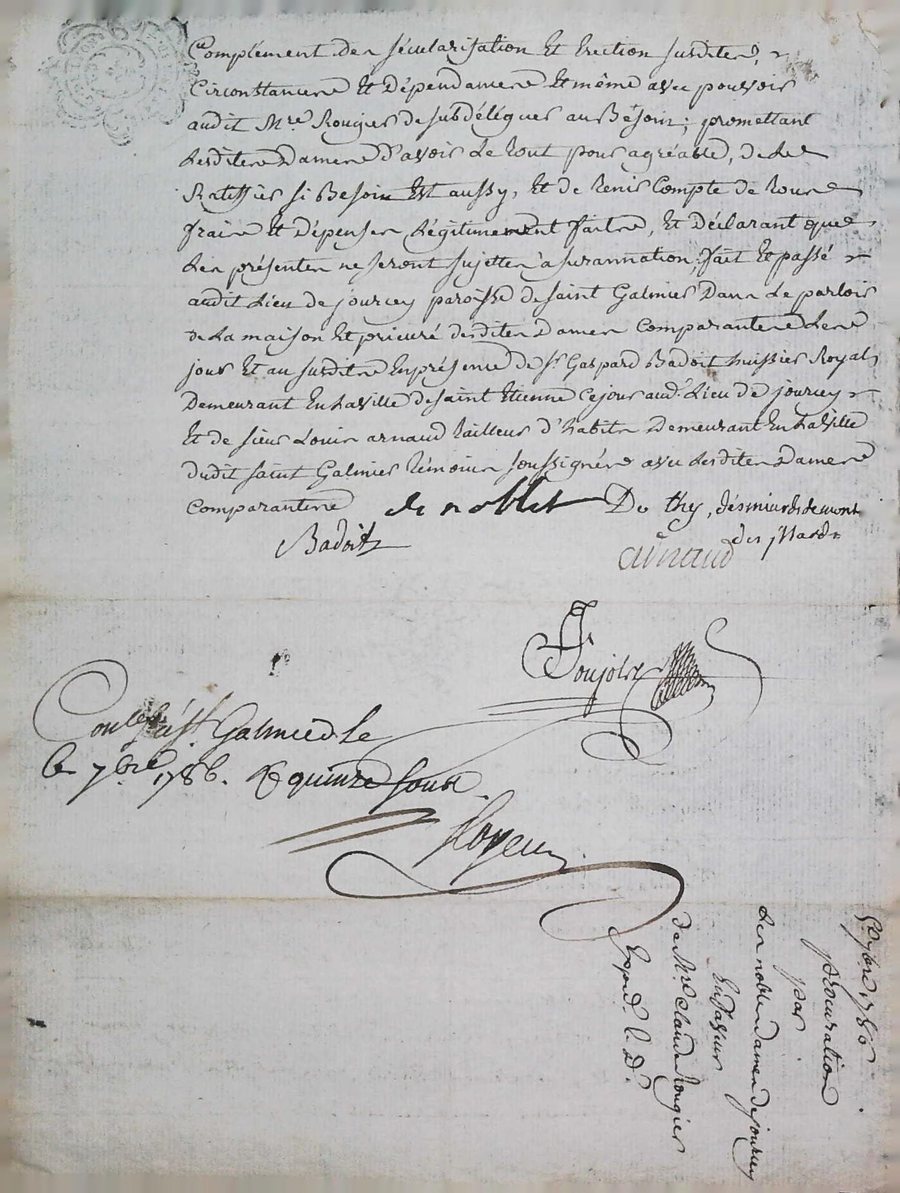 Complément des sécularisation Et Erection susdites,
Circonstances Et Dépendances Et même avec pouvoir
audit Mre Rougier de subdéléguer au Bésoin; promettant
Lesdites Dames D'avoir Le Tout pour agréable, de Le
Ratiffier si Besoin Est aussy, Et de tenir Compte de tous
fraix Et Dépenses Légitimement faites, Et Déclarant que
Les présentes ne seront sujettes a surannation, fait Et passé
audit Lieu de jourcey paroisse de saint Galmier Dans Le parloir
de La maison Et prieuré desdites Dames Comparantes Les
jour Et an susdits En présence de Sr Gaspard Badoit huissier Royal
Demeurant En La ville de saint Etienne ce jour aud. Lieu de jourcey
Et de sieur Louis arnaud tailleur d'habits Demeurant En La Ville
dudit saint Galmier témoins soussignés avec Lesdites Dames
Comparantes de noblet Du thy,
Badoit
arnaud
Pujolx
a st Galmier Le
7bre 1786. quinze sous
7bre 1786
procuration
par
Les nobles dames de jourcey
En faveur
de Mre Claude Rougier